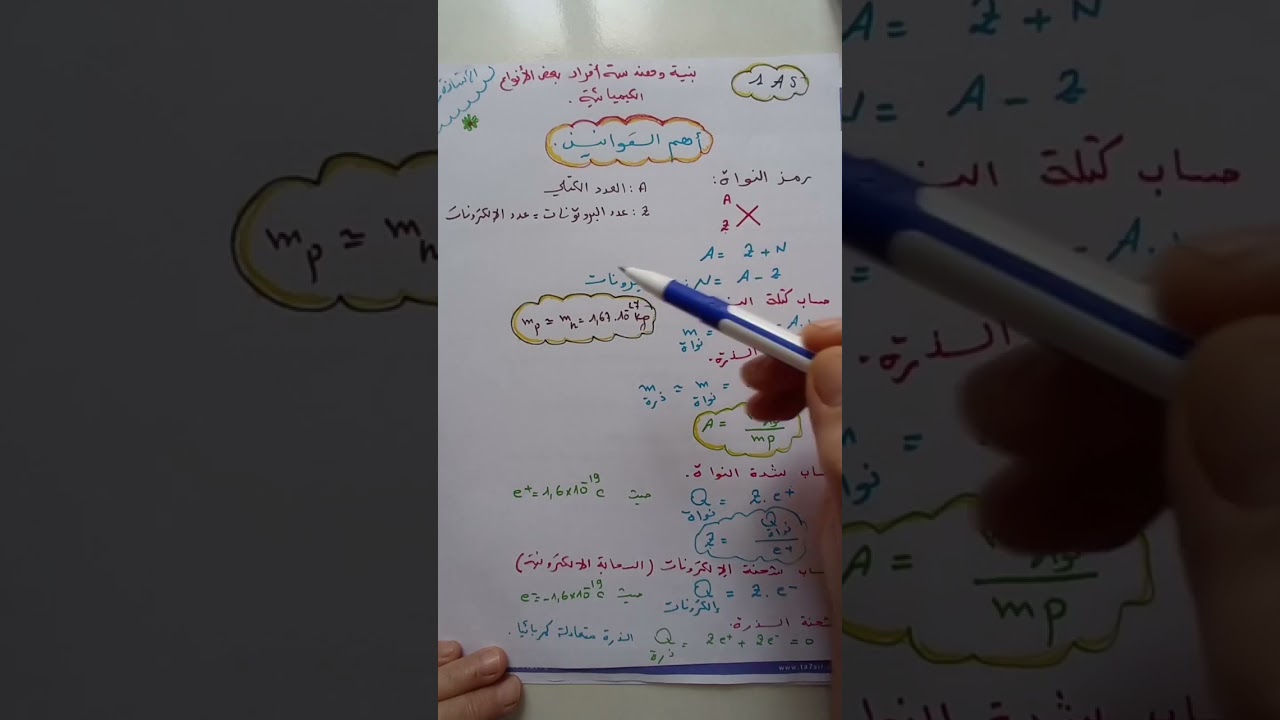 1 AS
بنية وهندسة أفراد بعض الأنواع
الكيميائية.
الأستاذة
أهم القوانين.
رمز النواة:
A
X
Z
A: العدد الكتلي
Z: عدد البروتونات = عدد الإلكترونات
A = Z + N
N = A - Z
حساب كتلة
mp ≃ mn = 1,67.10^-27 kg
m نواة =
الذرة.
m ذرة ≃ m نواة =
A = / mp
حساب شحنة النواة.
Q نواة = Z.e+ حيث e+ = 1,6x10^-19 c
Z = Q نواة / e+
حساب شحنة الإلكترونات (السحابة الالكترونية)
Q إلكترونات = Z.e- حيث e- = -1,6x10^-19 c
شحنة الذرة.
Q ذرة = Ze+ + Ze- = 0 الذرة متعادلة كهربائيا.